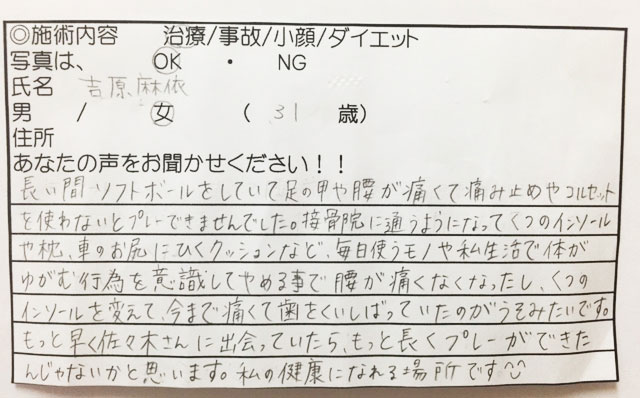 ◎施術内容　治療/事故/小顔/ダイエット
写真は、　OK　・　NG
氏名　吉原 麻依
男　/　女　(　31　歳)
住所
あなたの声をお聞かせください！！
長い間ソフトボールをしていて足の甲や腰が痛くて痛み止めやコルセット
を使わないとプレーできませんでした。接骨院に通うようになってくつのインソール
や枕、車のお尻にひくクッションなど、毎日使うモノや私生活で体が
ゆがむ行為を意識してやめる事で腰が痛くなくなったし、くつの
インソールを変えて、今まで痛くて歯をくいしばっていたのがうそみたいです。
もっと早く佐々木さんに出会っていたら、もっと長くプレーができた
んじゃないかと思います。私の健康になれる場所です